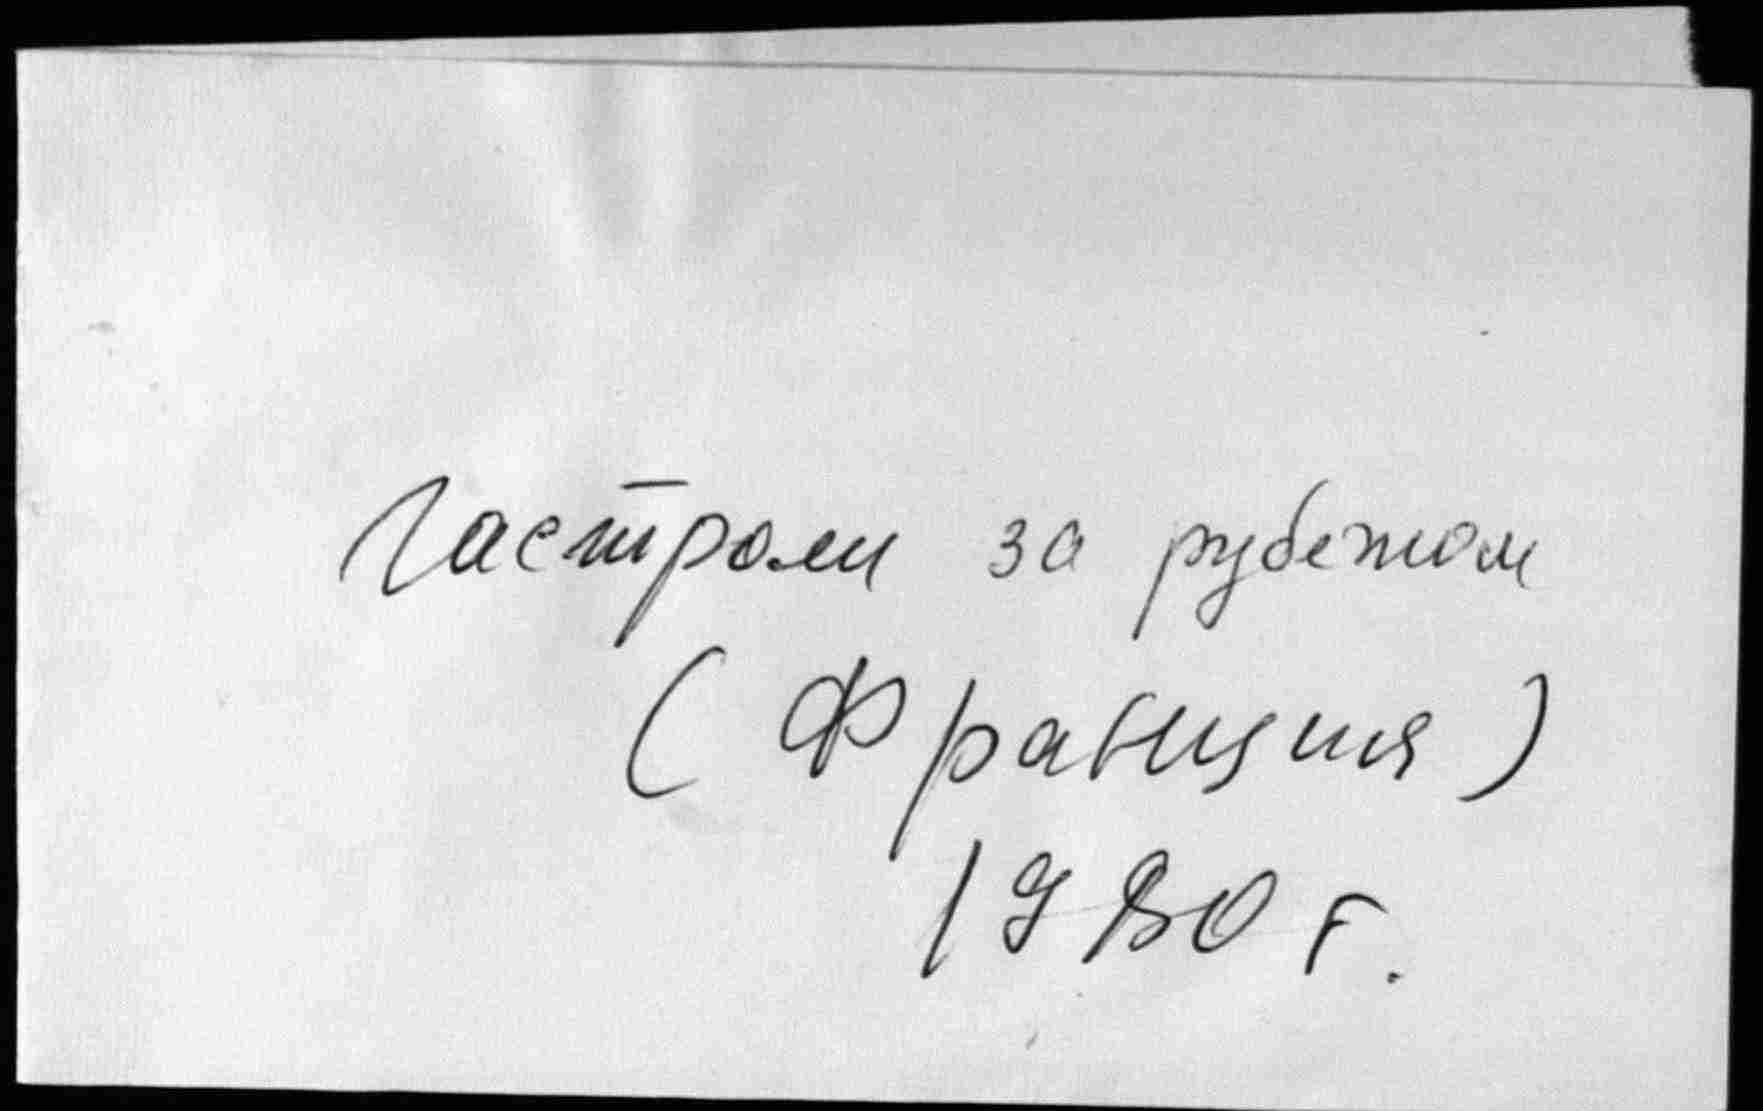 Гастроли за рубежом
(Франция)
1980 г.